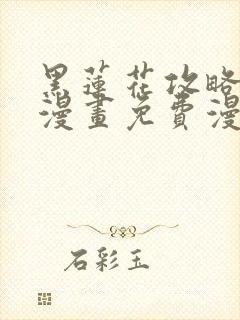 黑蓮花攻略
漫畫免費漫
石彩玉